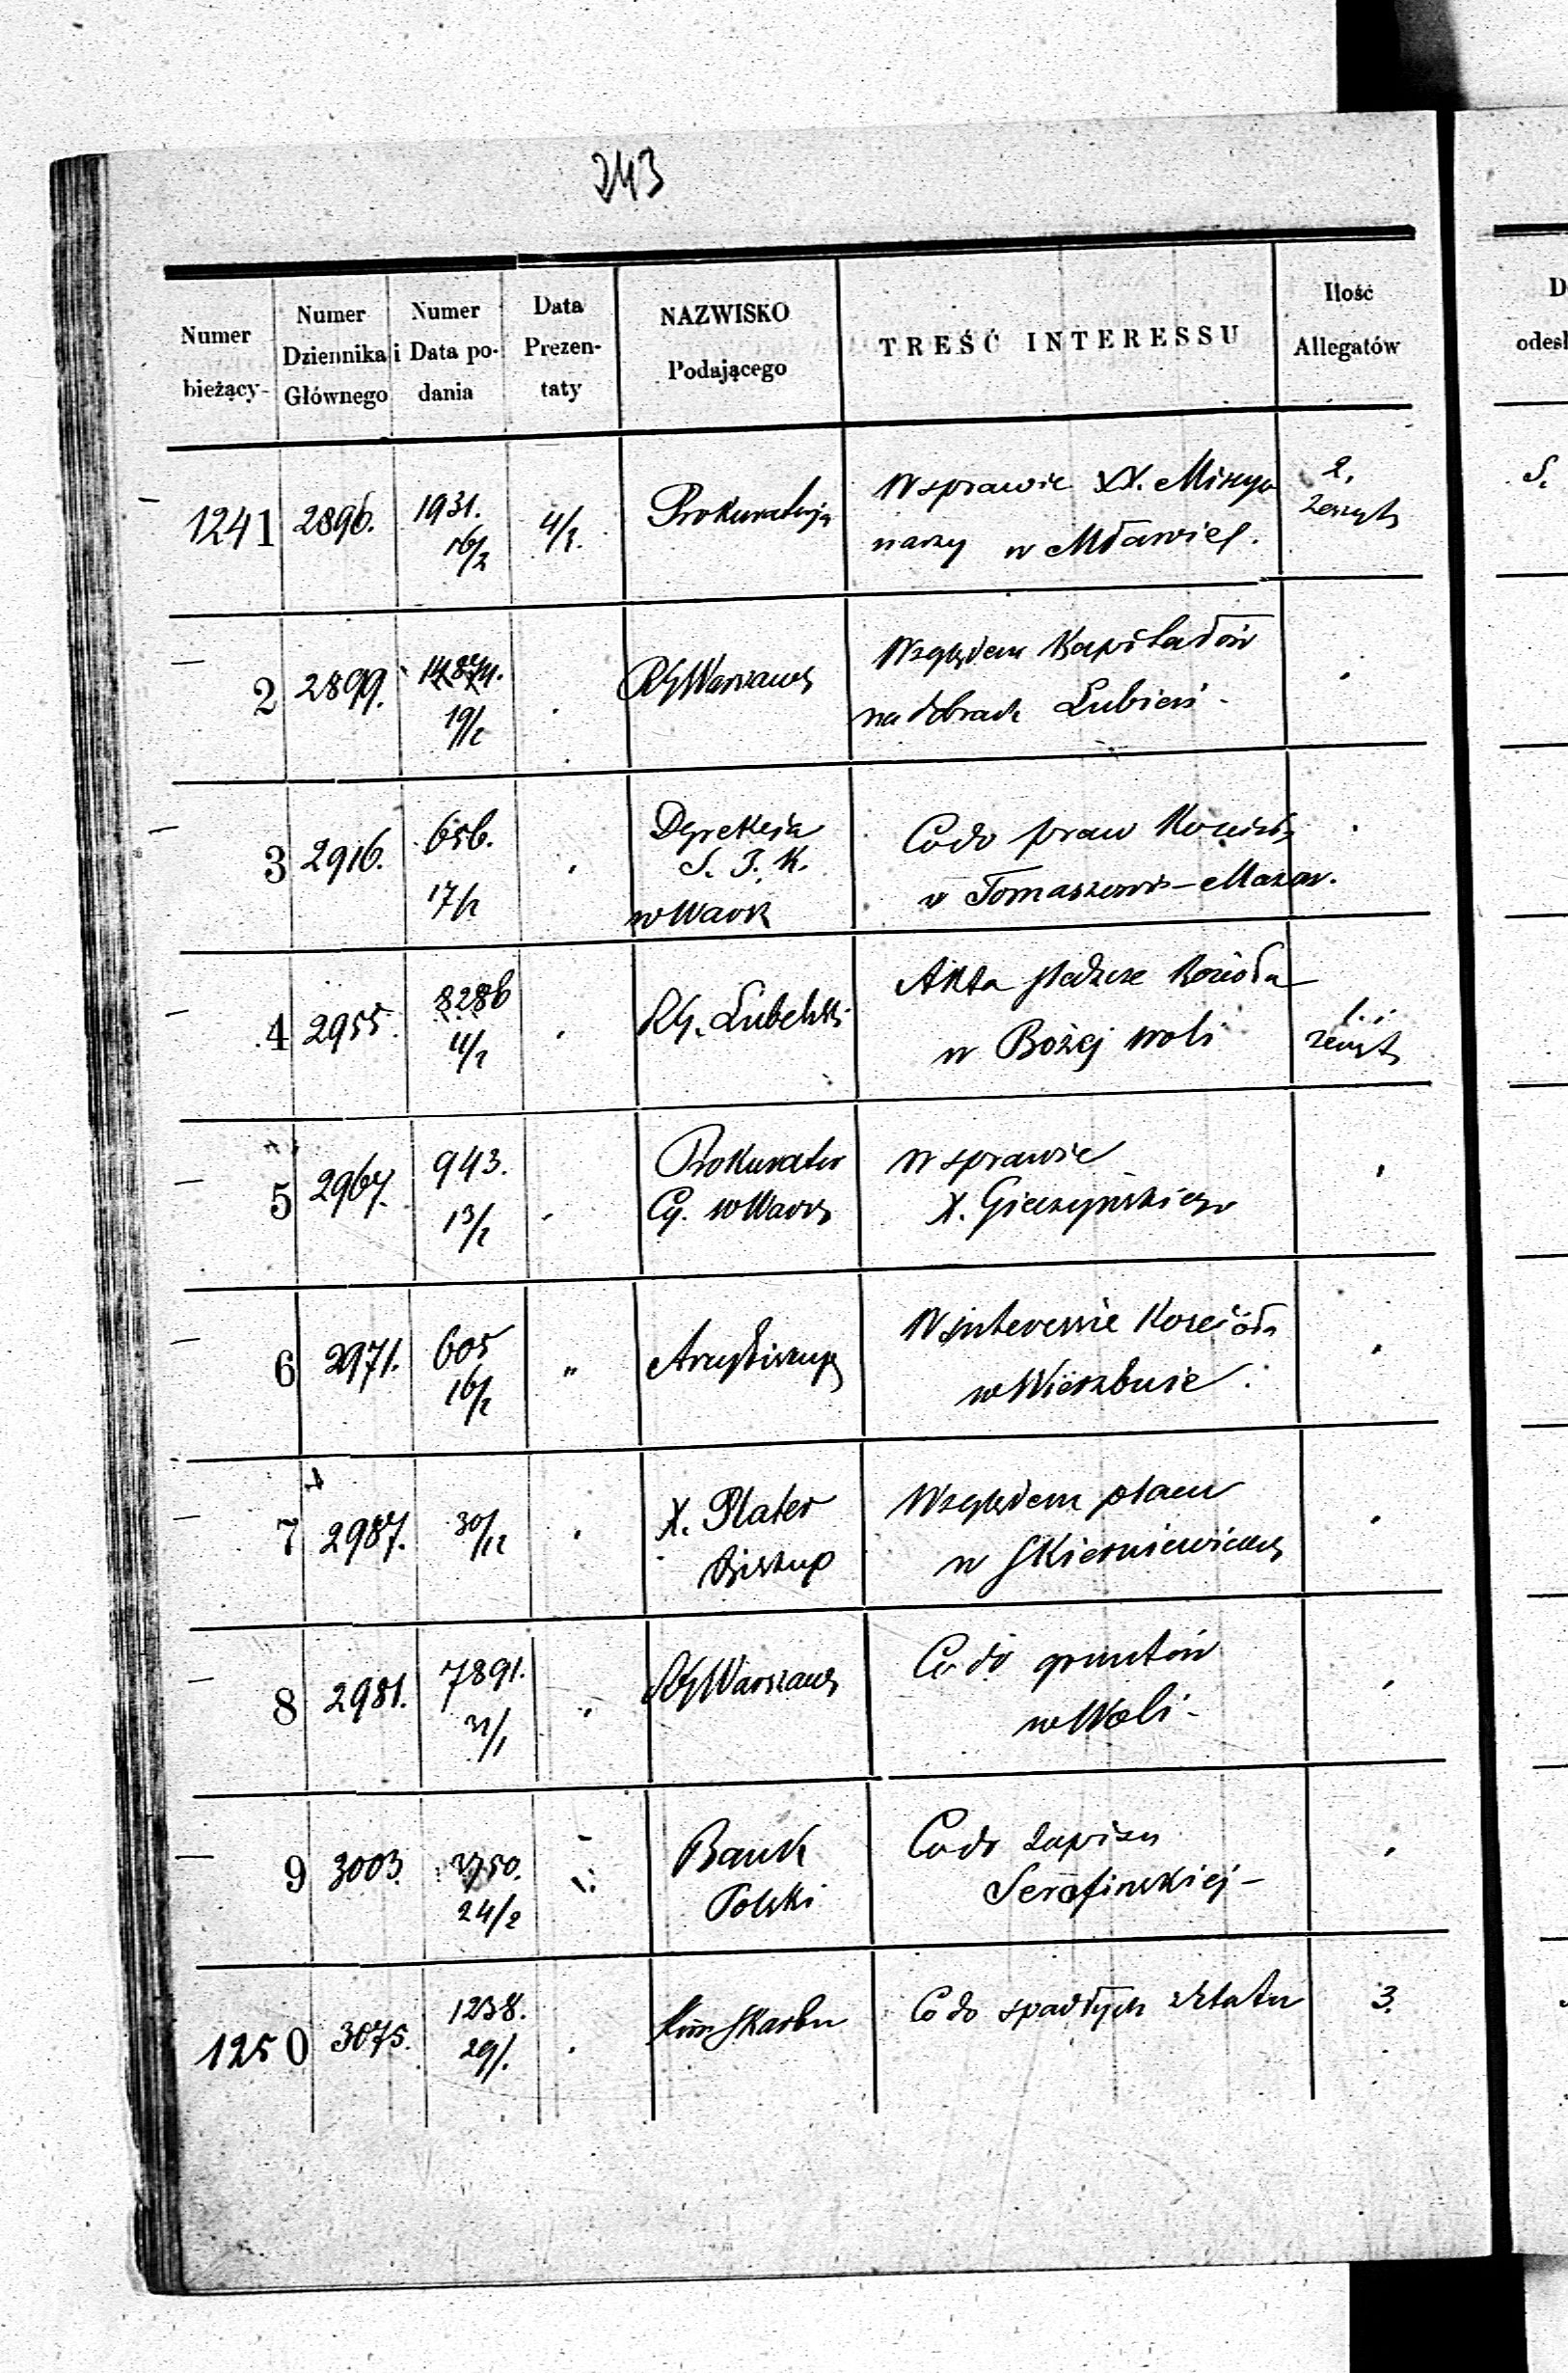 243
Numer bieżący
Numer Dziennika Głównego
Numer i Data podania
Data Prezentaty
NAZWISKO Podającego
TREŚĆ INTERESSU
Ilość Allegatów
1241 2896. 1931. 16/2 4/3. Prokuratorja W sprawie XX. Missyo 2.
narzy w Mławie. zeszyty
2 2899. 19/2 RG Warszaws Względem Kapitałów
na dobrach Lubień -
3 2916. 656. Dyrekcja Co do praw Kościoła
17/2 S. T. K. w Tomaszowie-Mazow.
w Warsz
4 2955. 8286 RG. Lubelski Akta Kościoła 1.
11/2 w Bożej woli zeszyt
5 2967. 943. Prokurator W sprawie
13/2 w Warsz X. Gieczyńskiego
6 2971. 605 " Arcybiskup W interessie Kościoła
16/2 w Wierzbnie.
7 2987. 30/12 X. Plater Względem placu
Biskup w Skierniewicach
8 2981. 7891. RG Warszaws Co do gruntów
31/1 w Woli -
9 3003. 2750. Bank Co do zapisu
24/2 Polski Serafińskiej -
1250 3075. 1238. Kom Skarbu Co do spadłych z etatu 3.
29/.
D
odesł
S.